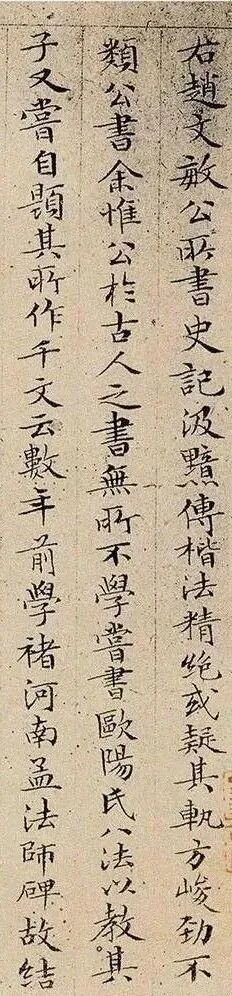 右趙文敏公所書史記汲黯傳楷法精絕或疑其軌方峻勁不
類公書余惟公於古人之書無所不學嘗書歐陽氏八法以教其
子又嘗自題其所作千文云數年前學褚河南孟法師碑故結